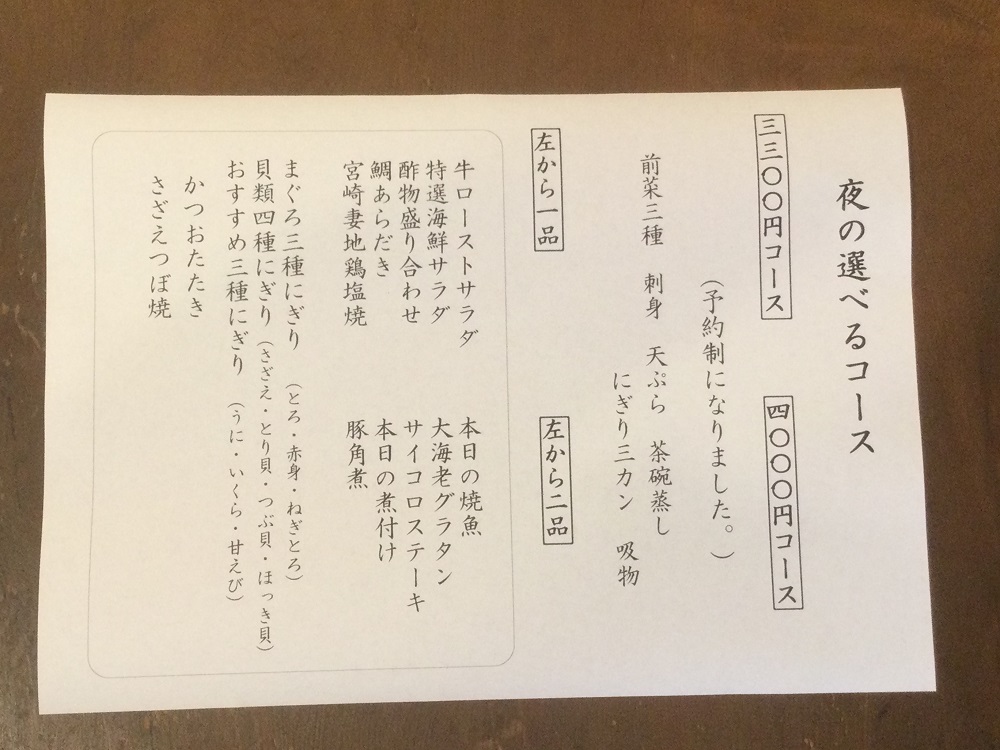 夜の選べるコース
三三〇〇円コース
四〇〇〇円コース
（予約制になりました。）
前菜三種　刺身　天ぷら　茶碗蒸し
にぎり三カン　吸物
左から一品
左から二品
牛ローストサラダ　本日の焼魚
特選海鮮サラダ　大海老グラタン
酢物盛り合わせ　サイコロステーキ
鯛あらだき　本日の煮付け
宮崎妻地鶏塩焼　豚角煮
まぐろ三種にぎり（とろ・赤身・ねぎとろ）
貝類四種にぎり（さざえ・とり貝・つぶ貝・ほっき貝）
おすすめ三種にぎり（うに・いくら・甘えび）
かつおたたき
さざえつぼ焼